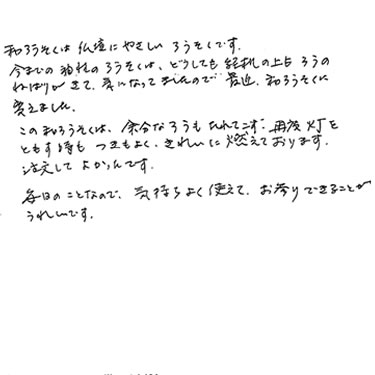 和ろうそくは仏壇にやさしいろうそくです。
今までの油性のろうそくは、どうしても経机の上もろうの
ねばりがきて、気になってましたので最近、和ろうそくに
変えました。
この和ろうそくは、余分なろうもたれてこず、再度灯を
ともす時もつきもよく、きれいに燃えております。
注文してよかったです。
毎日のことなので、気持ちよく使えて、お参りできることが
うれしいです。